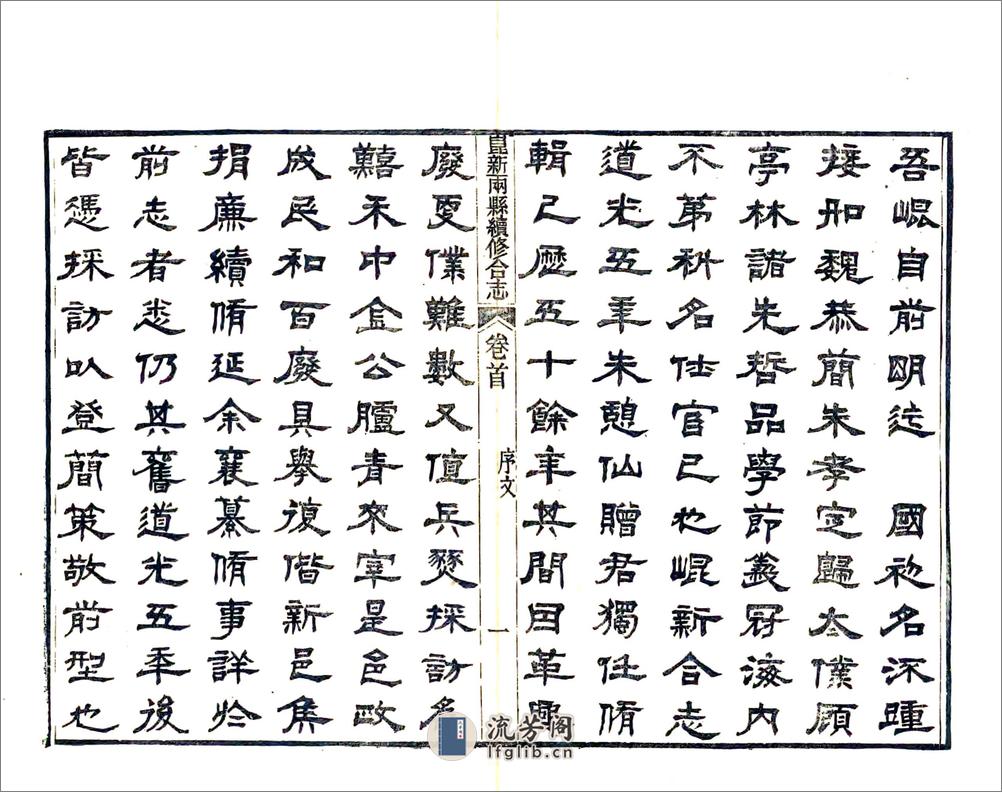 吾崐自前明迄　國初名流踵
接如魏恭簡朱孝定歸太僕顧
亭林諸先哲品學節義冠海內
不第科名仕宦已也崐新合志
道光五年朱憩仙贈君獨任脩
輯已歷五十餘年其間因革興
崑新兩縣續修合志
卷首
序文
一
廢更僕難數又值兵燹採訪尤
囏禾中金公臚青來宰是邑政
成民和百廢具舉復偕新邑焦
捐廉續脩延余襄纂脩事詳於
前志者悉仍其舊道光五年後
皆憑採訪以登簡策敬前型也
流芳阁
lfglib.cn